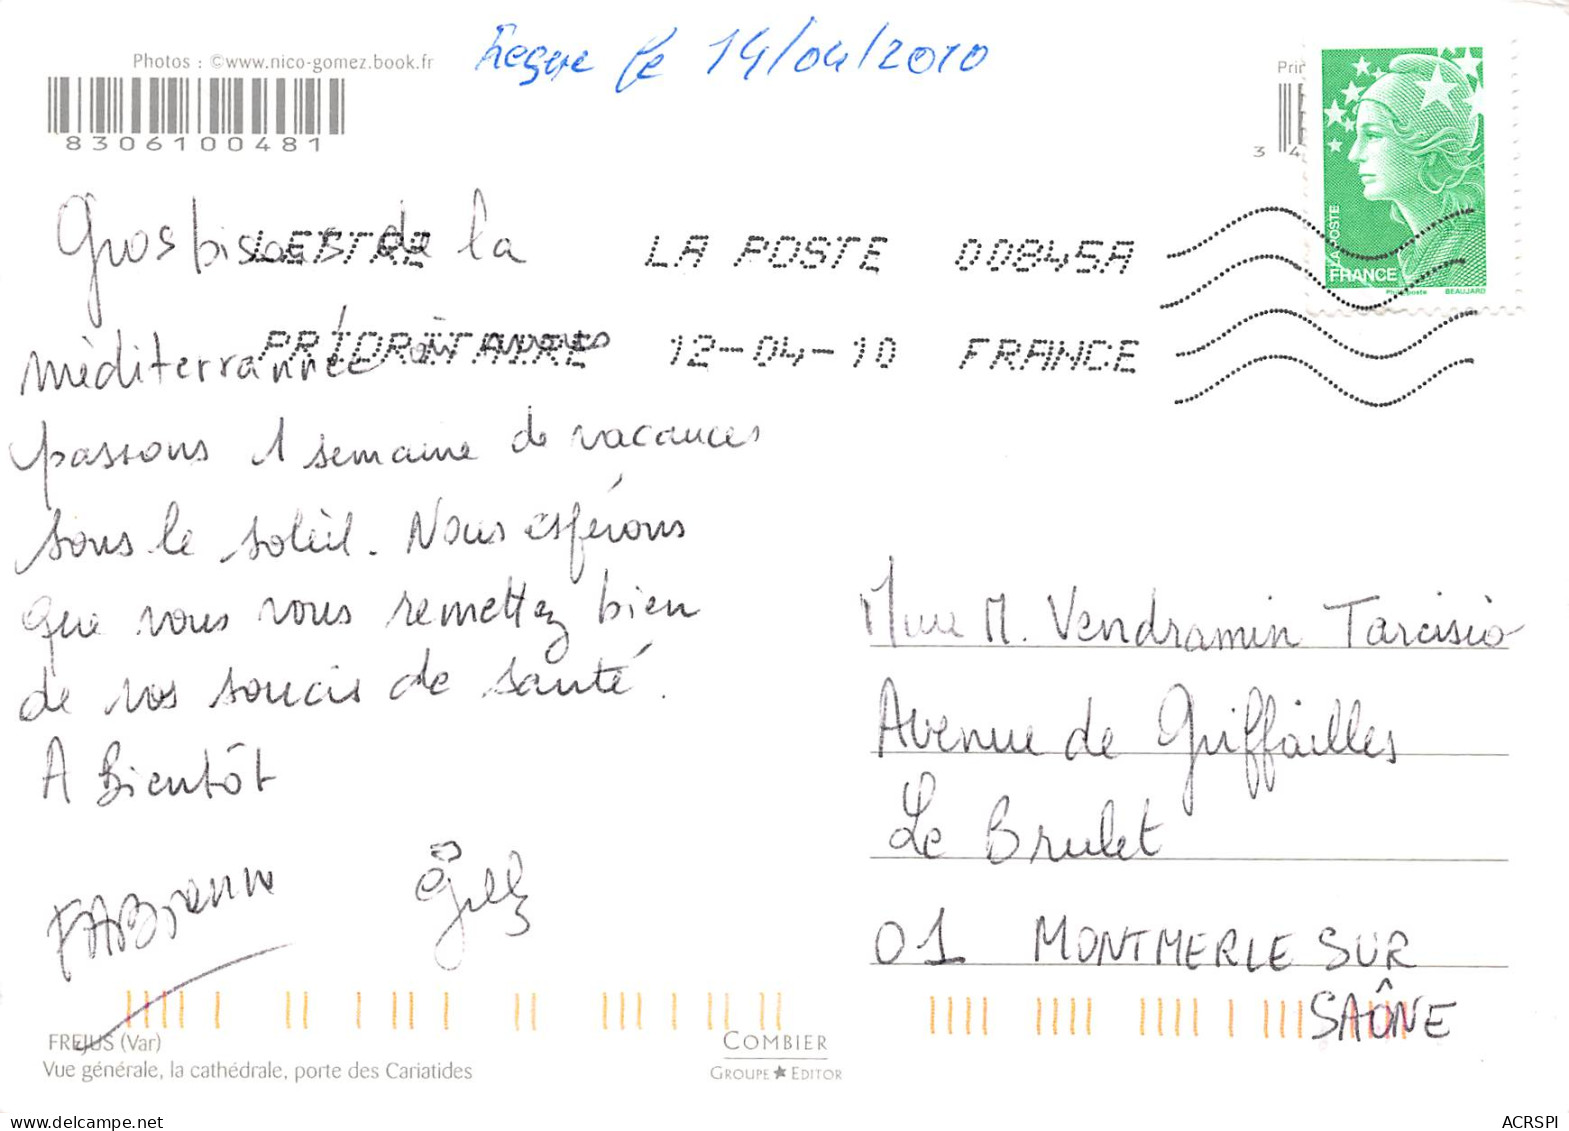 Photos : ©www.nico-gomez.book.fr
8306100481
le 14/04/2010
Prin
3 4
LA POSTE
FRANCE
Phil@poste BEAUJARD
LETTRE LA POSTE 00845A
PRIORITAIRE 12-04-10 FRANCE
Gros bisous de la
méditerrannée où nous
passons 1 semaine de vacances
sous le soleil. Nous espérons
que vous vous remettez bien
de vos soucis de santé.
A Bientôt
FABienne Gilles
Mme M. Vendramin Tarcisio
Avenue de Griffailles
Le Brulet
01 MONTMERLE SUR
SAÔNE
FREJUS (Var)
Vue générale, la cathédrale, porte des Cariatides
COMBIER
GROUPE ★ EDITOR
ACRSPI